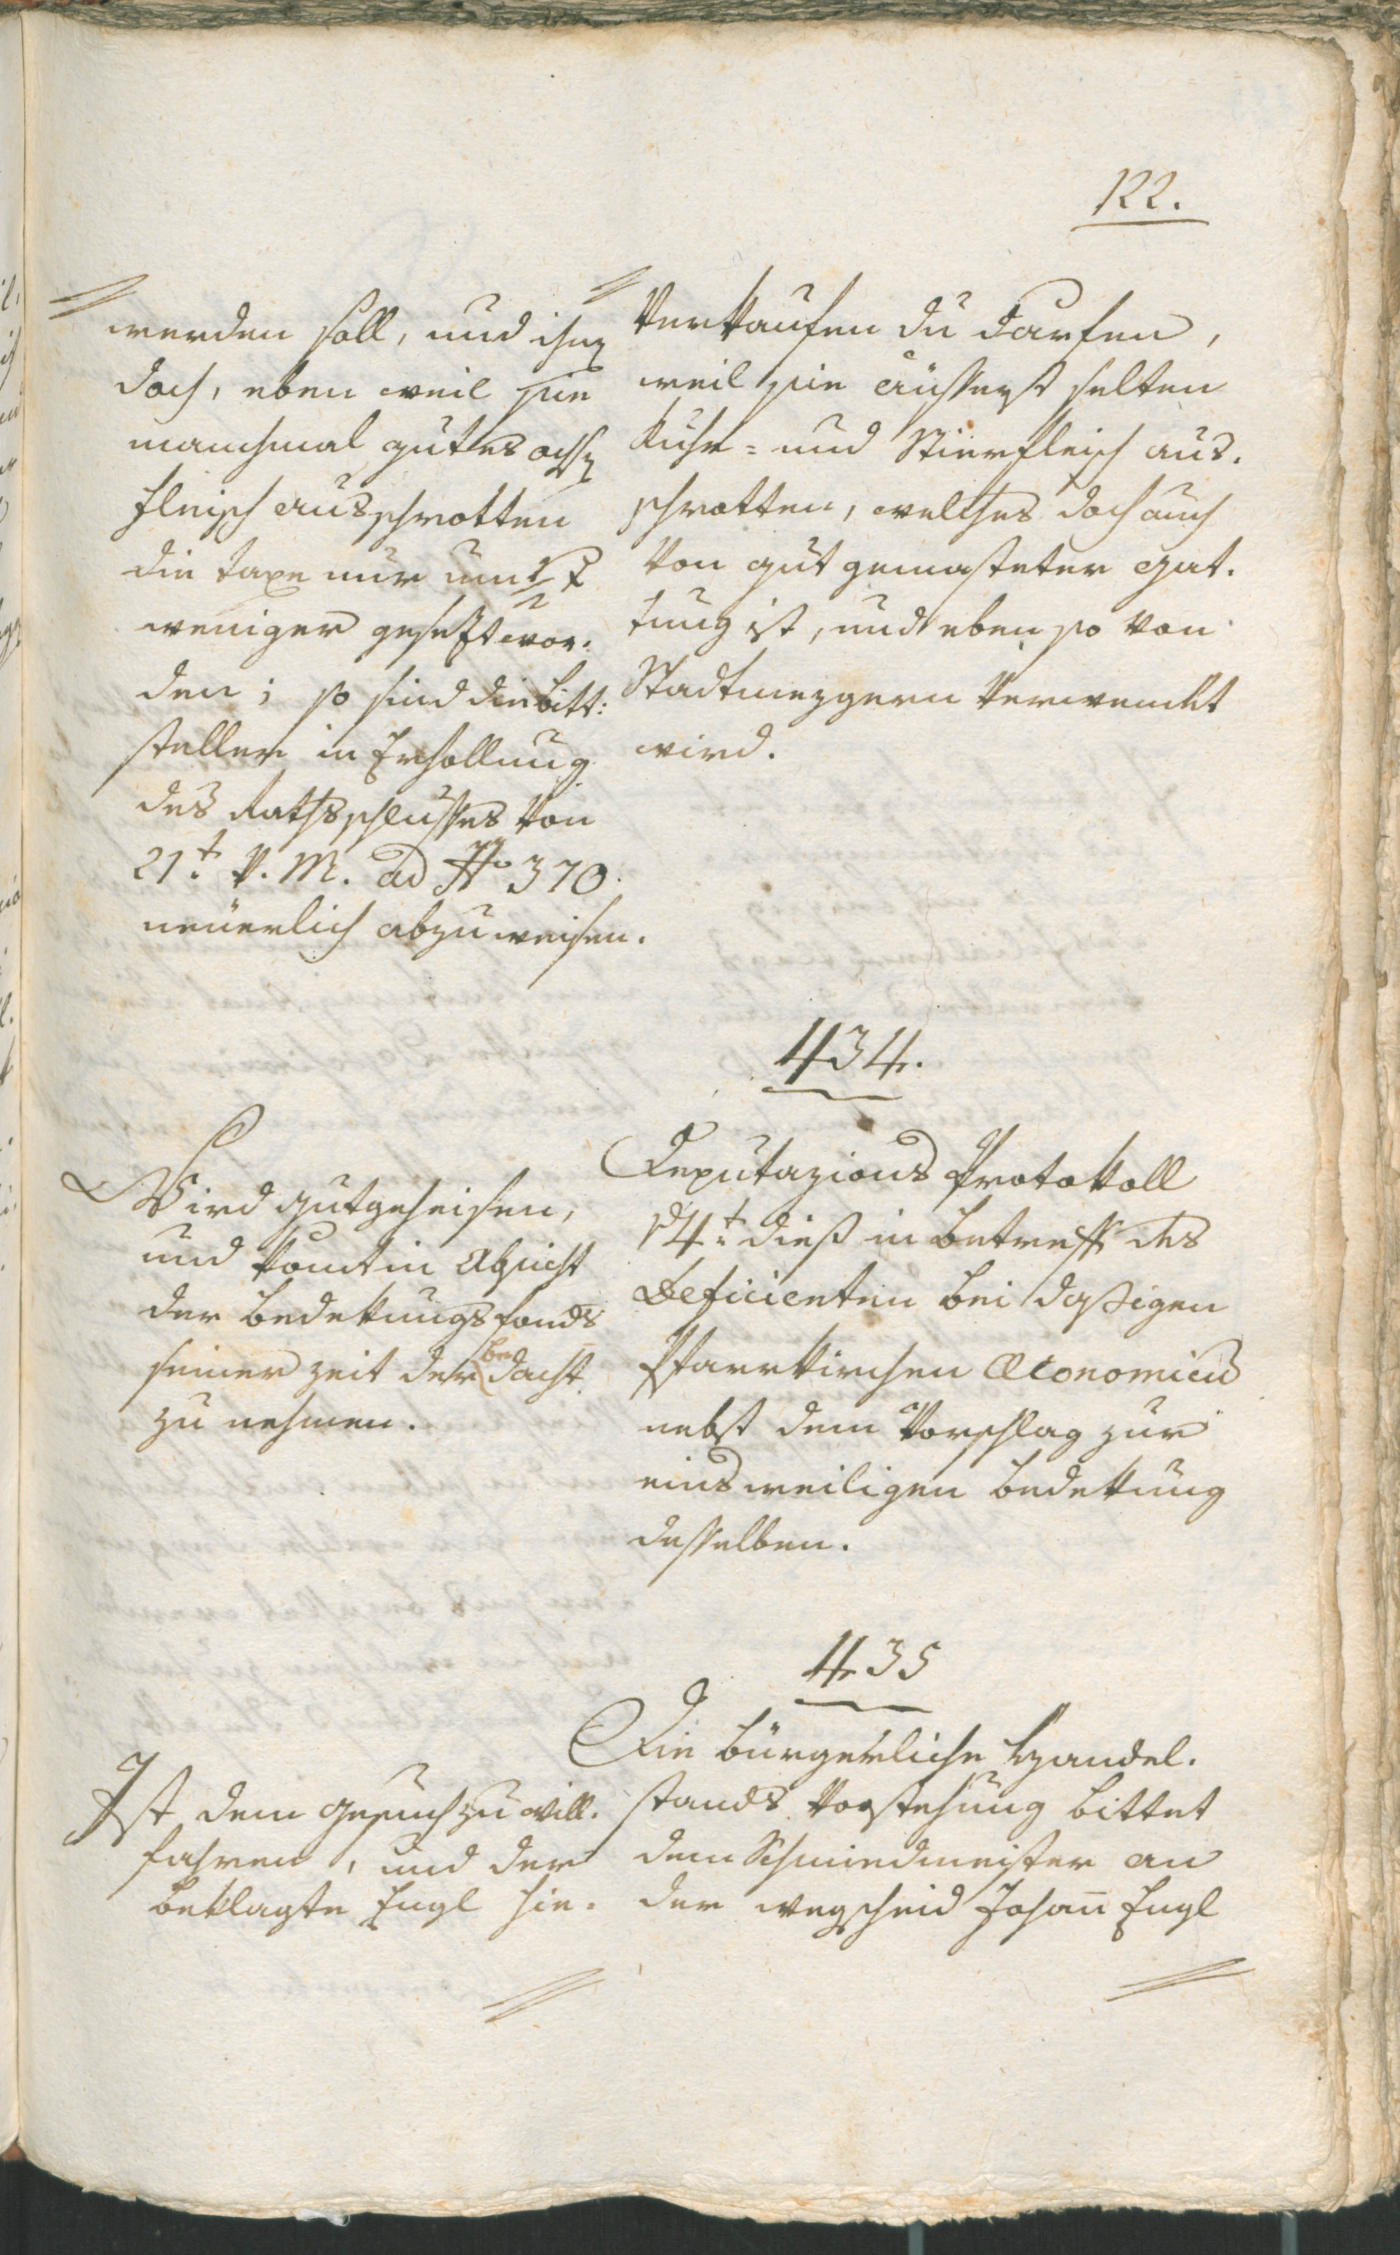 122.
werden soll, und ihnen
doch, eben weil sie
manchmal gutes ochsen
fleisch ausschrotten
die taxe nur um
weniger gesetzt wor.
den; so sind die bitt:
steller in Erhollung
des Rathsschlusses von
21t. v. M. ad No 370.
neüerlich abzuweisen.
Verkaufen zu därfen,
weil sie äusserst selten
Kuhe= und Stierfleisch aus.
schrotten, welches doch auch
von gut gemasteter gat.
tung ist, und eben so von
Stadtmezgern verwendet
wird.
434.
Wird gutgeheisen,
und komt in Absicht
der bedekungsfonds
seiner zeit der bedacht
zu nehmen.
Deputazions Protokoll
d 4t. dieß in betreff des
Deficienten bei dasigen
Pfarrkirchen Œconomien
nebst dem Vorschlag zur
einsweiligen bedekung
desselben.
435
Ist dem gesuch zu will.
fahren, und der
beklagte Engl hie.
Die bürgerliche Handel.
stands Vorstehung bittet
dem Schmiedmeister an
der wegscheid Johan̄ Engl